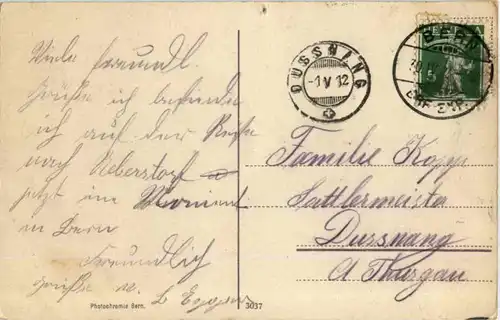 Viele freundl.
Grüsse ich befinde
ich auf der Reise
nach Ueberstorf
jetzt im Moment
in Bern
Freundlich
grüsst
DUSSNANG
-1 V 12
BERN
Familie Kopp
Sattlermeister
Dussnang
Thurgau
Photochromie Bern.
3037